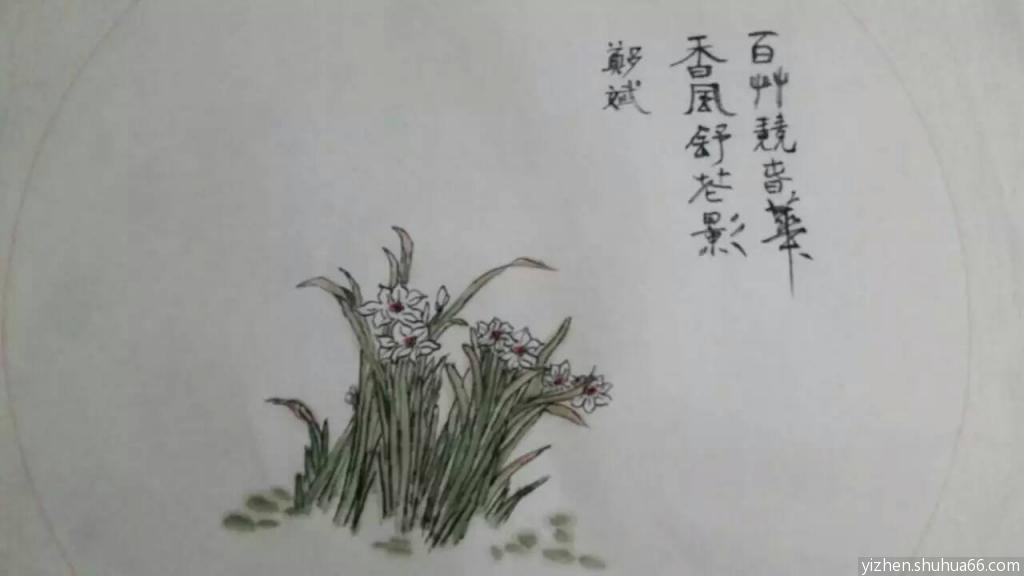 百艸競春華
香風舒花影
鄭斌
yizhen.shuhua66.com